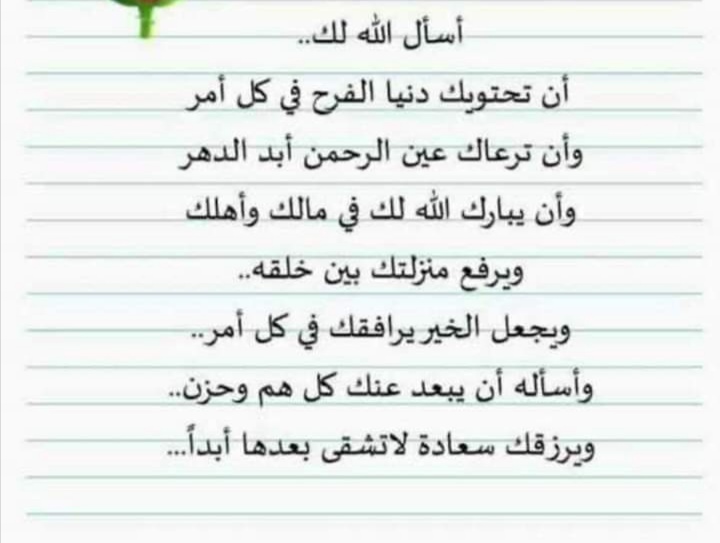 أسأل الله لك..
أن تحتويك دنيا الفرح في كل أمر
وأن ترعاك عين الرحمن أبد الدهر
وأن يبارك الله لك في مالك وأهلك
ويرفع منزلتك بين خلقه..
ويجعل الخير يرافقك في كل أمر..
وأسأله أن يبعد عنك كل هم وحزن..
ويرزقك سعادة لاتشقى بعدها أبداً...